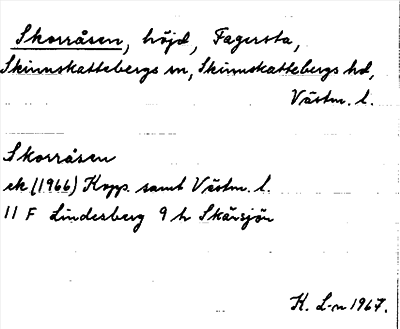 Skorråsen, höjd, Fagersta,
Skinnskattebergs sn, Skinnskattebergs hd,
Västm. l.
Skorråsen
ek (1966) Kopp. samt Västm. l.
11 F Lindesberg 9 h Skärsjön
K. L-n 1967.